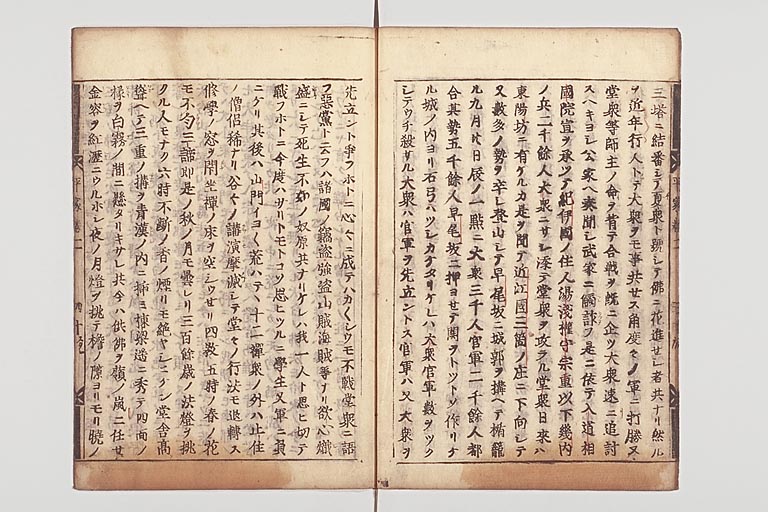 三塔ニ結番シテ夏衆ト號シテ佛ニ花進セシ者共ナリ然ル
ヲ近年行人トテ大衆ヲモ事共セス角度々ノ軍ニ打勝ヌ
堂衆等師主ノ命ヲ背テ合戦ヲ既ニ企ツ大衆速ニ追討
スヘキヨシ公家ヘ奏聞シ武家ニ觸訴ノ是ニ依テ入道相
國院宣ヲ承ツテ紀伊國ノ住人湯淺權守宗重以下畿内
ノ兵二千餘人大衆ニサシ添テ堂衆ヲ攻ラル堂衆日来ハ
東陽坊ニ有ケルカ是ヲ聞テ近江國三箇ノ庄ニ下向シテ
又數多ノ勢ヲ卒シ登山シテ早尾坂ニ城郭ヲ搆ヘテ楯籠
ル九月廿日辰ノ一點ニ大衆三千人官軍二千餘人都
合其勢五千餘人早尾坂ニ押ヨセテ閧ヲトツトツ作リケ
ル城ノ内ヨリ石弓ハツシカケタリケレハ大衆官軍數ヲツク
シテウチ殺サル大衆ハ官軍ヲ先立ントス官軍ハ又大衆ヲ
先立ント爭フホトニ心々ニ成テハカ〱シウモ不戦堂衆ニ語
フ惡黨ト云フハ諸國ノ竊盗強盗山賊海賊等ナリ欲心熾
盛ニシテ死生不知ノ奴原共ナリケレハ我一人ト思ヒ切テ
戰フホトニ今度ハサリトモトコソ思ヒツルニ學生又軍ニ負
ニケリ其後ハ山門イヨ〱荒ハテヽ十二禪衆ノ外ハ止住
ノ僧侶稀ナリ谷々ノ講演摩滅シテ堂々ノ行法モ退轉ス
修學ノ窓ヲ閇坐禪ノ床ヲ空シウセリ四教五時ノ春ノ花
モ不匂三諦即是ノ秋ノ月モ曇レリ三百餘歳ノ法燈ヲ挑
クル人モナク六時不斷ノ香ノ煙リモ絶ヤシニケン堂舎高
聳ヘテ三重ノ搆ヲ青漢ノ内ニ挿ミ棟梁遥ニ秀テ四面ノ
椽ヲ白霧ノ間ニ懸タリキサレ共今ハ供佛ヲ嶺ノ嵐ニ任セ
金容ヲ紅瀝ニウルホシ夜ノ月燈ヲ挑テ檐ノ隙ヨリモリ曉ノ
平家巻二